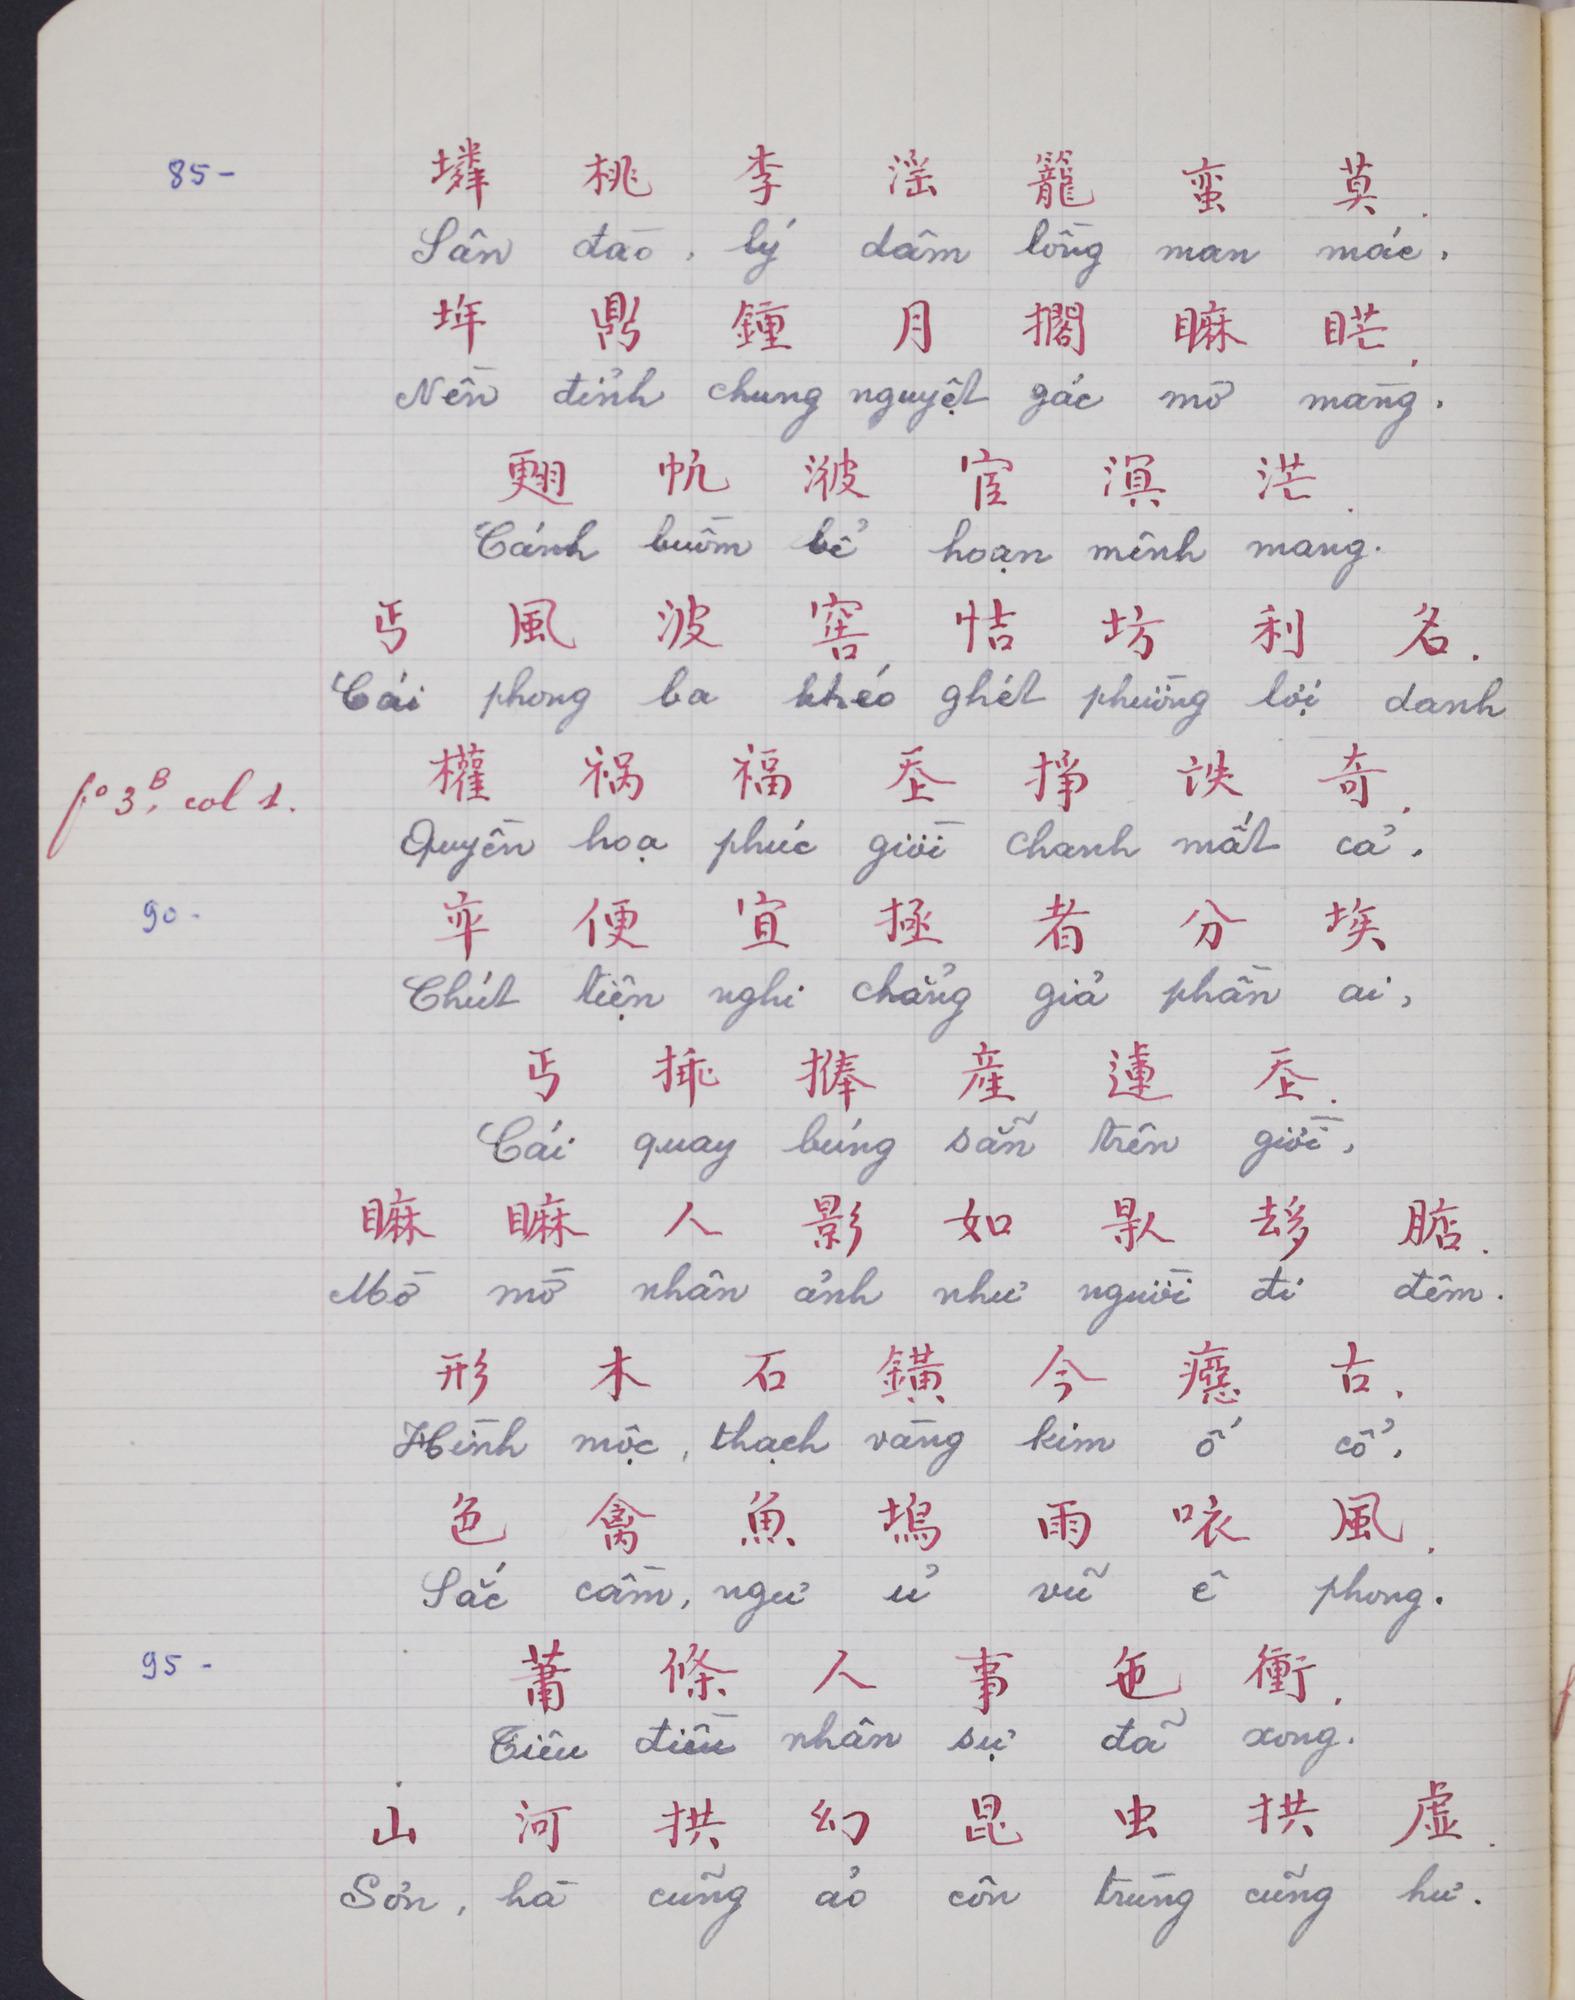 85-
墫 桃 李 滛 籠 蛮 莫.
Sân đào, lý dâm lồng man mác,
𡋂 鼎 鍾 月 擱 𥊚 𥇀.
Nền đỉnh chung nguyệt gác mơ màng.
𦑃 帆 𣷷 宦 溟 茫.
Cánh buồm bể hoạn mênh mang.
丐 風 波 窖 恄 坊 利 名.
Cái phong ba khéo ghét phường lợi danh
fo 3B, col 1.
權 祸 福 𡗶 掙 詄 奇.
Quyền hoạ phúc giời chanh mất cả,
90-
𠃣 便 宜 拯 者 分 埃
Chút tiện nghi chẳng giả phần ai,
丐 捶 捧 産 蓮 𡗶.
Cái quay búng sẵn trên giời,
𥊚 𥊚 人 影 如 𠊛 𠫾 𣎀.
Mờ mờ nhân ảnh như người đi đêm.
形 木 石 鐄 今 癋 古.
Hình mộc, thạch vàng kim ố cổ,
色 禽 魚 塢 雨 㕈 風.
Sắc cầm, ngư ủ vũ ê phong.
95-
蕭 條 人 事 㐌 衝.
Tiêu điều nhân sự đã xong.
山 河 拱 幻 昆 虫 拱 虚.
Sơn, hà cũng ảo côn trùng cũng hư.